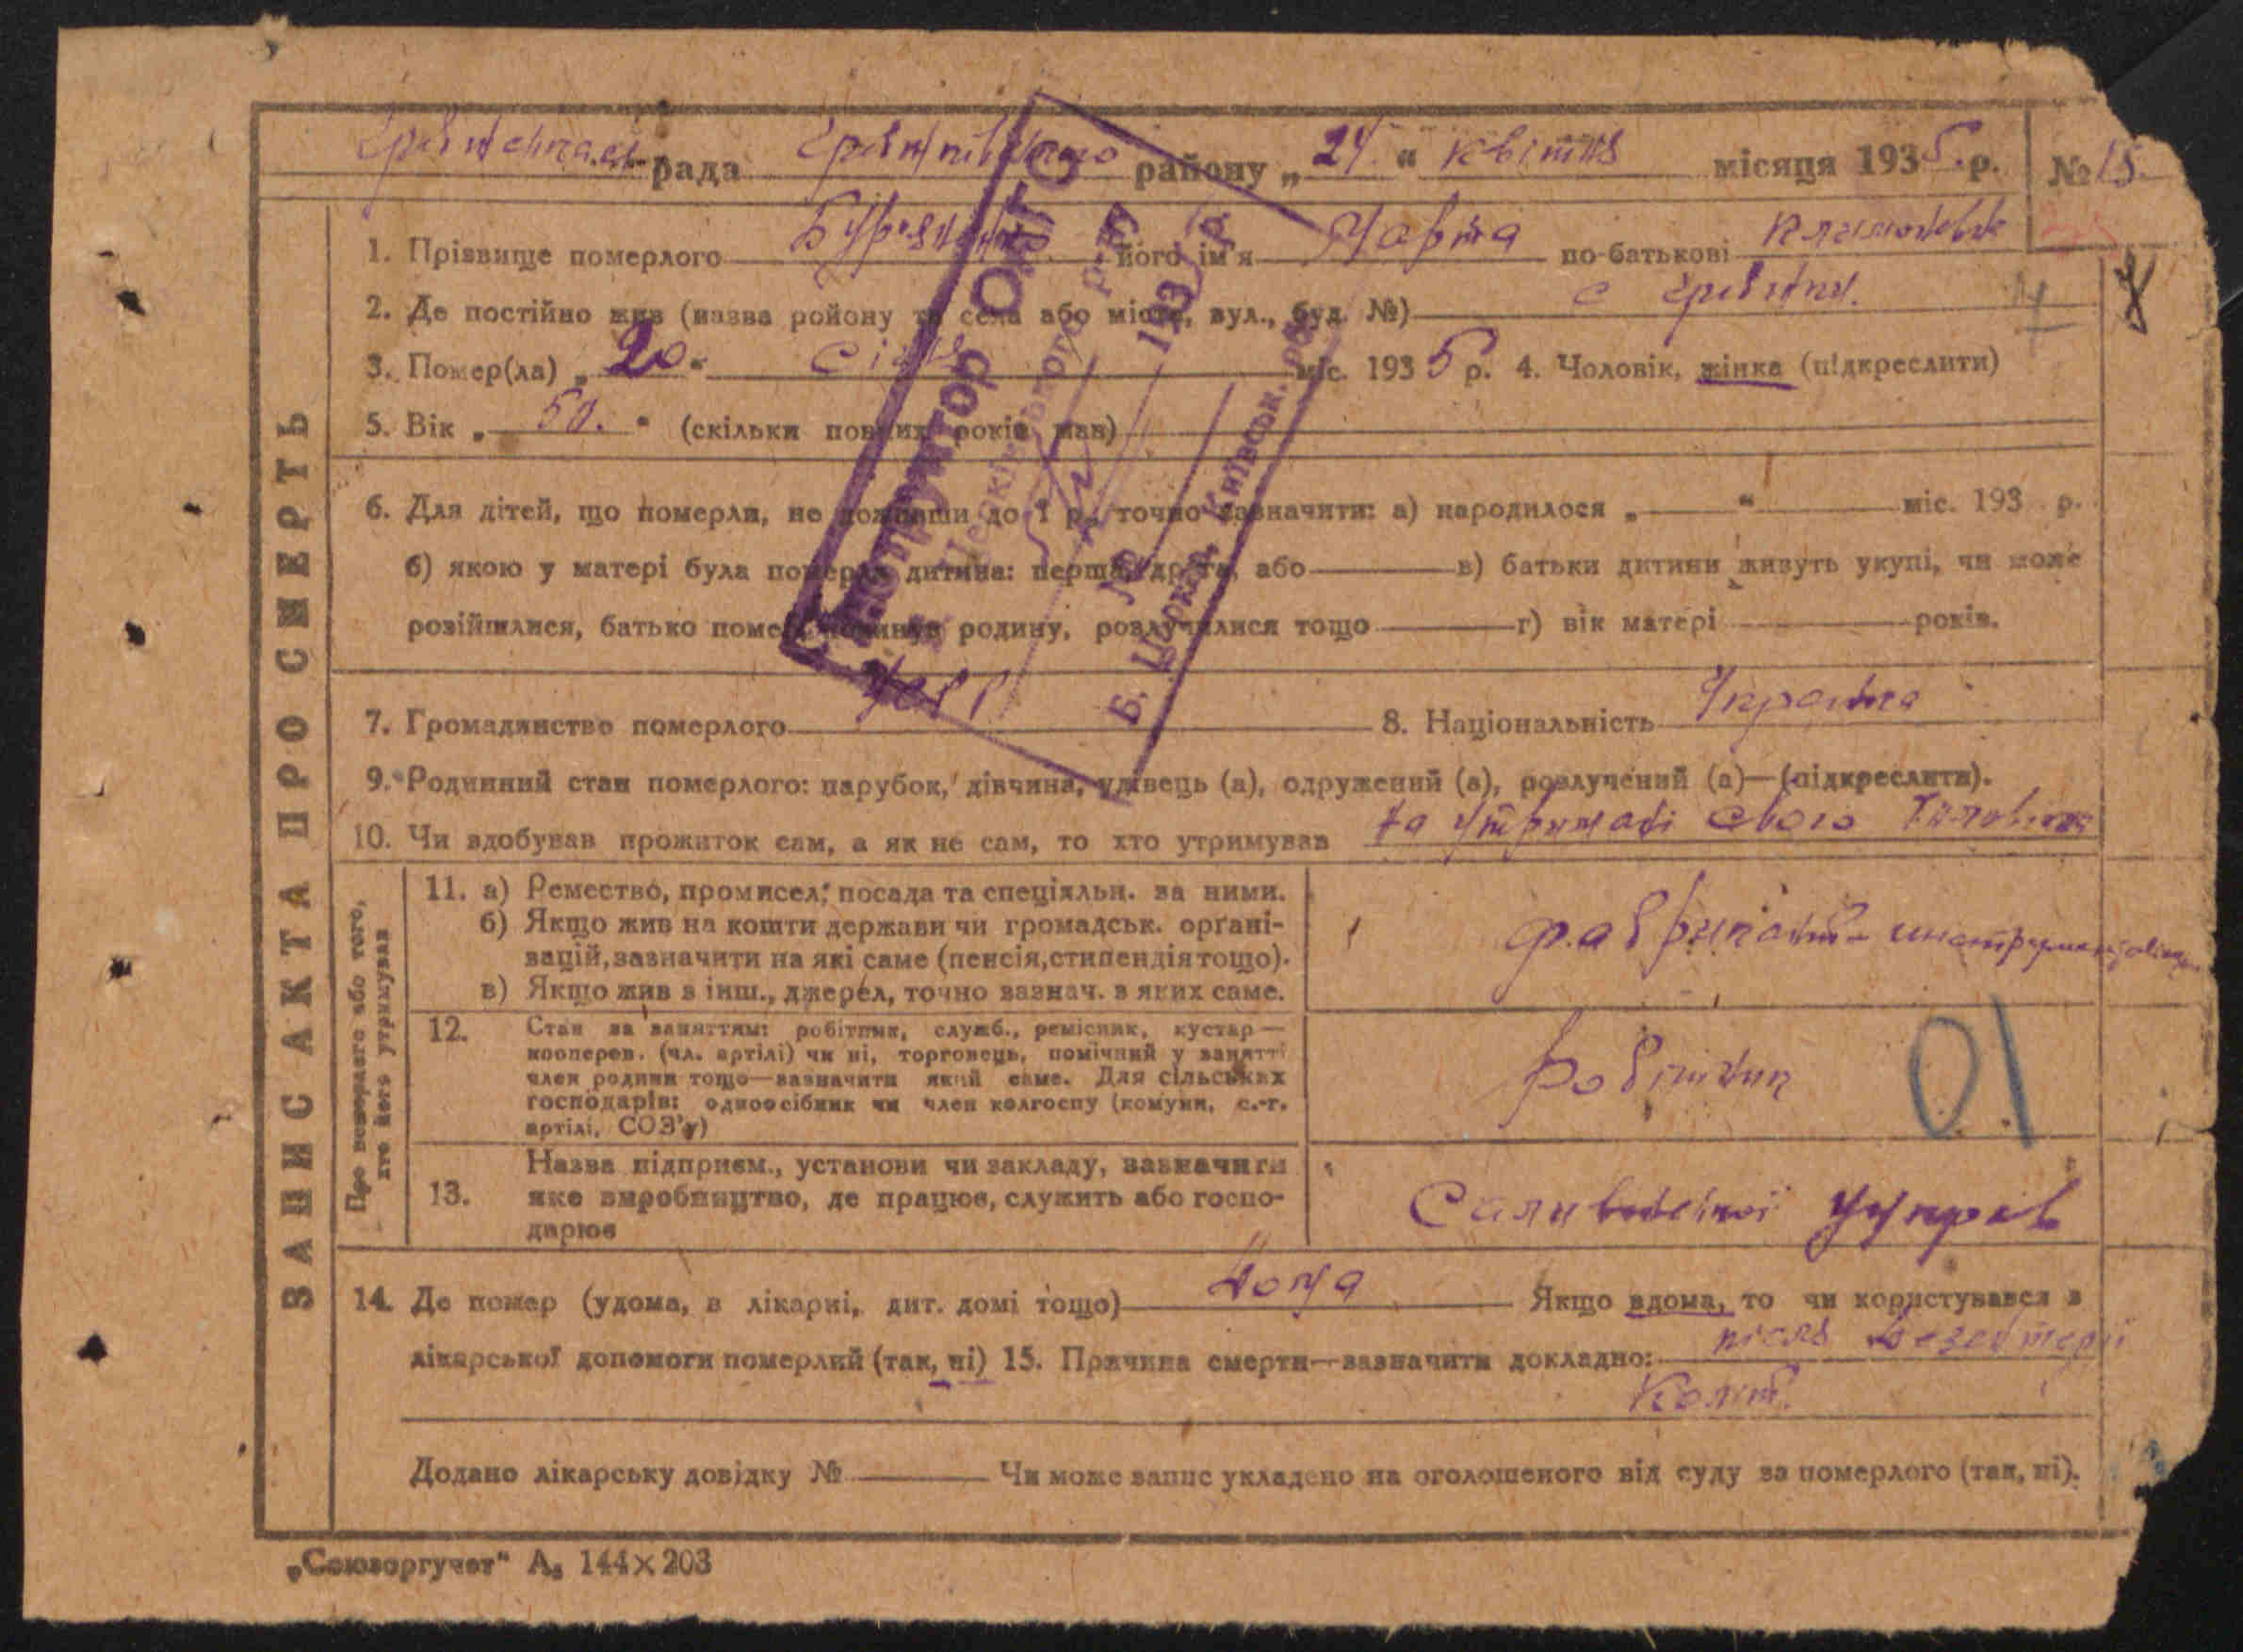 рада району „24“ квітня місяця 1935 р. № 15.
1. Прізвище померлого його ім'я Марта по-батькові
2. Де постійно жив (назва ройону та села або місто, вул., буд. №) с
3. Помер(ла) „20“ січня міс. 1935 р. 4. Чоловік, жінка (підкреслити)
5. Вік „50.“ (скільки повних років мав)
6. Для дітей, що померли, не доживши до 1 р., точно зазначити: а) народилося „ “ міс. 193 р.
б) якою у матері була померла дитина: перша, друга, або в) батьки дитини живуть укупі, чи може
розійшлися, батько помер, покинув родину, розлучилися тощо г) вік матері років.
7. Громадянство померлого 8. Національність Українка
9. Родинний стан померлого: парубок, дівчина, удівець (а), одружений (а), розлучений (а)—(підкреслити).
10. Чи здобував прожиток сам, а як не сам, то хто утримував на утримані свого чоловіка
11. а) Ремество, промисел, посада та спеціяльн. за ними.
б) Якщо жив на кошти держави чи громадськ. орґані-
зацій, зазначити на які саме (пенсія, стипендія тощо).
в) Якщо жив з інш., джерел, точно зазнач. з яких саме.
12. Стан за заняттям: робітник, служб., ремісник, кустар—
кооперов. (чл. артілі) чи ні, торговець, помічний у занятті
член родини тощо—зазначити який саме. Для сільських
господарів: одноосібник чи член колгоспу (комуни, с.-г.
артілі, СОЗ'у)
робітник
01
13. Назва підприєм., установи чи закладу, зазначити
яке виробництво, де працює, служить або госпо-
дарює
14. Де помер (удома, в лікарні, дит. домі тощо) дома Якщо вдома, то чи користувався з
лікарської допомоги померлий (так, ні) 15. Причина смерти—зазначити докладно: після дезентерії
Коліт.
Додано лікарську довідку № Чи може запис укладено на оголошеного від суду за померлого (так, ні).
„Союзоргучет“ А₅ 144×203
ЗАПИС АКТА ПРО СМЕРТЬ
Про померлого або того,
хто його утримував
Інструктор ОАГС
р-ну
193 р.
№
Б. Церква, Київськ. обл.